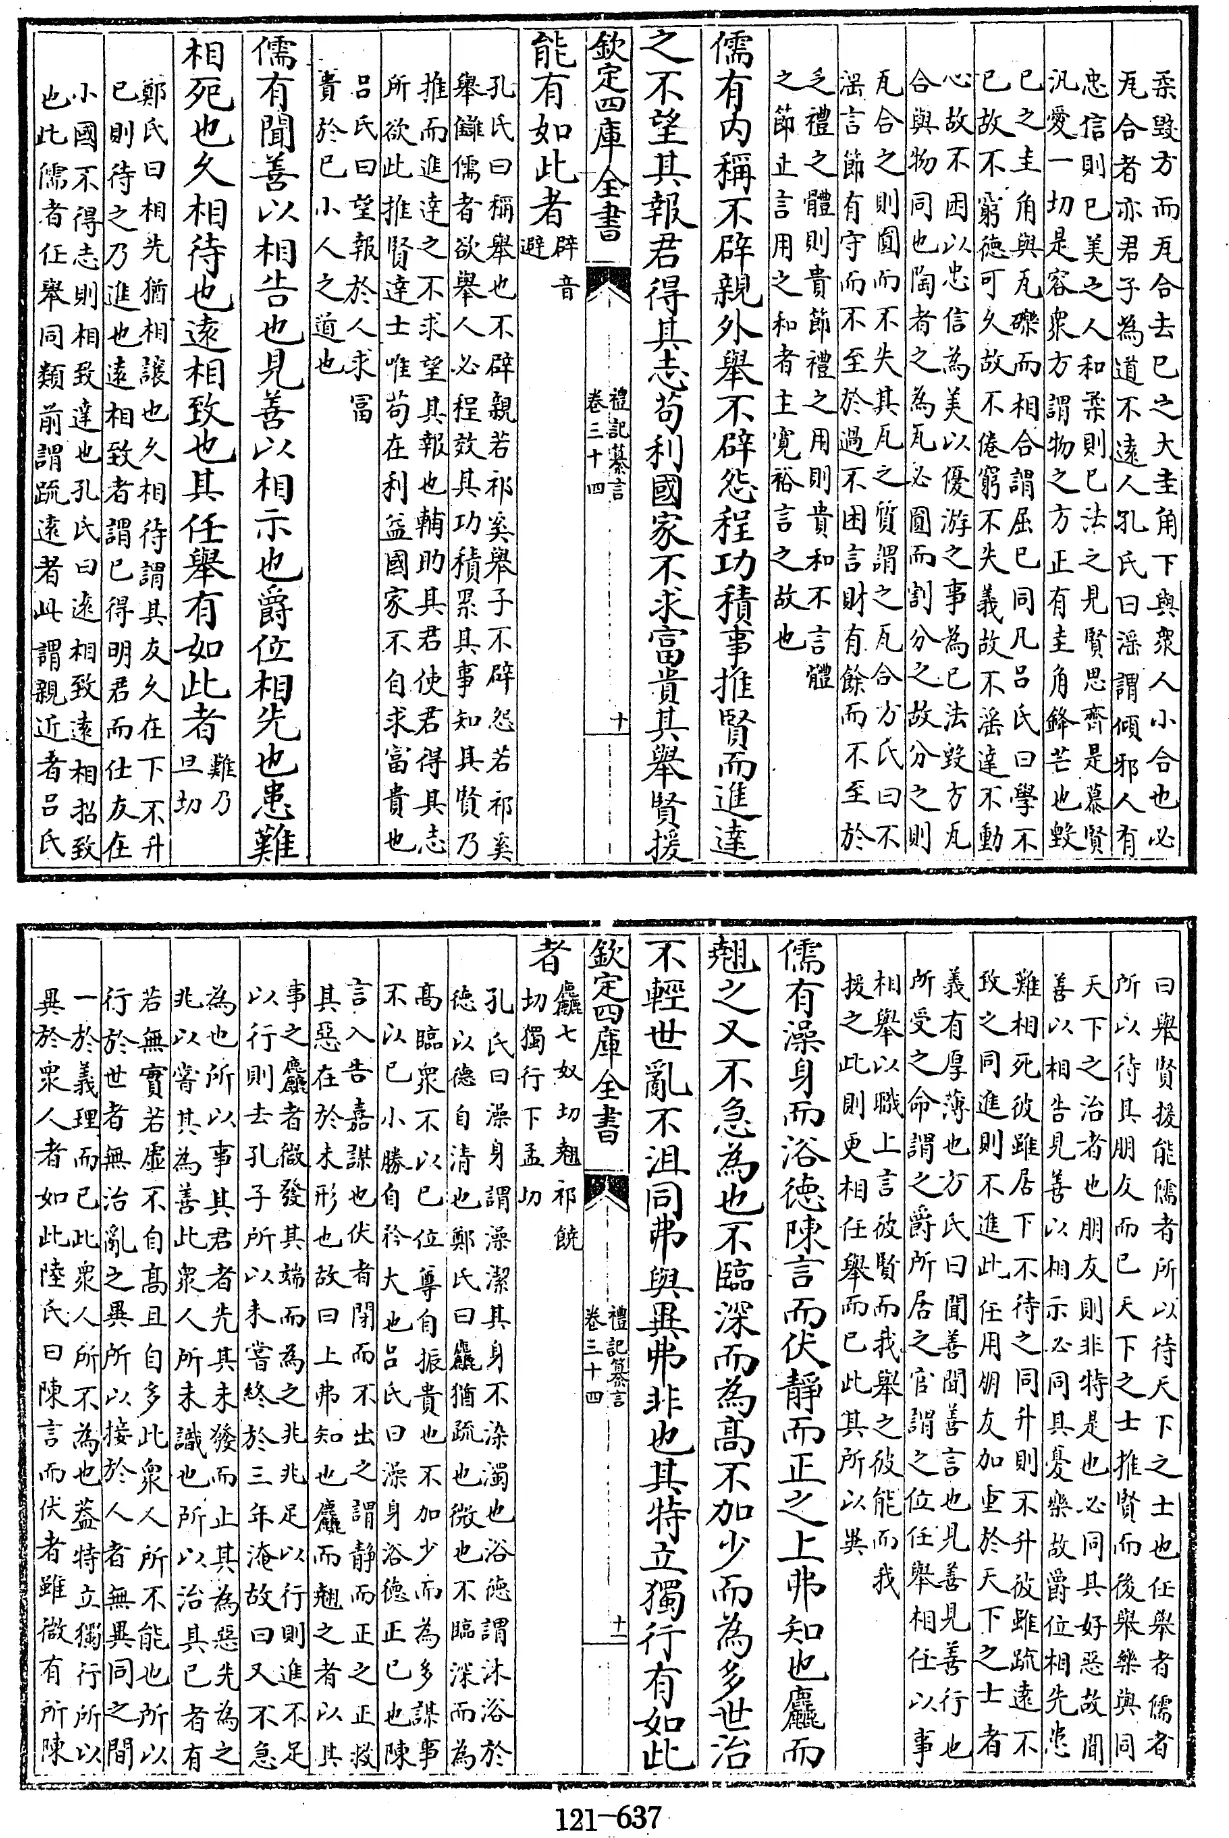 柔毀方而瓦合去已之大圭角下與衆人小合也必
瓦合者亦君子為道不遠人孔氏曰滛謂傾邪人有
忠信則已美之人和柔則已法之見賢思齊是慕賢
汎愛一切是容衆方謂物之方正有圭角鋒芒也毀
已之圭角與瓦礫而相合謂屈已同凡吕氏曰學不
已故不窮德可久故不倦窮不失義故不滛達不動
心故不困以忠信為美以優游之事為已法毀方瓦
合與物同也陶者之為瓦必圓而割分之故分之則
瓦合之則圓而不失其瓦之質謂之瓦合方氏曰不
滛言節有守而不至於過不困言財有餘而不至於
乏禮之體則貴節禮之用則貴和不言體
之節止言用之和者主寛裕言之故也
儒有内稱不辟親外舉不辟怨程功積事推賢而進達
之不望其報君得其志苟利國家不求富貴其舉賢援
欽定四庫全書
禮記纂言
卷三十四
十
能有如此者
辟音
避
孔氏曰稱舉也不辟親若祁奚舉子不辟怨若祁奚
舉讎儒者欲舉人必程效其功積累其事知其賢乃
推而進達之不求望其報也輔助其君使君得其志
所欲此推賢達士唯苟在利益國家不自求富貴也
吕氏曰望報於人求富
貴於已小人之道也
儒有聞善以相告也見善以相示也爵位相先也患難
相死也久相待也逺相致也其任舉有如此者
難乃
旦切
鄭氏曰相先猶相讓也久相待謂其友久在下不升
已則待之乃進也逺相致者謂已得明君而仕友在
小國不得志則相致達也孔氏曰逺相致逺相招致
也此儒者任舉同類前謂疏逺者此謂親近者吕氏
曰舉賢援能儒者所以待天下之士也任舉者儒者
所以待其朋友而已天下之士推賢而後舉樂與同
天下之治者也朋友則非特是也必同其好惡故聞
善以相告見善以相示必同其憂樂故爵位相先患
難相死彼雖居下不待之同升則不升彼雖疏逺不
致之同進則不進此任用朋友加重於天下之士者
義有厚薄也方氏曰聞善聞善言也見善見善行也
所受之命謂之爵所居之官謂之位任舉相任以事
相舉以職上言彼賢而我舉之彼能而我
援之此則更相任舉而已此其所以異
儒有澡身而浴德陳言而伏静而正之上弗知也麤而
翹之又不急為也不臨深而為高不加少而為多世治
不輕世亂不沮同弗與異弗非也其特立獨行有如此
欽定四庫全書
禮記纂言
卷三十四
十一
者
麤七奴切翹祁饒
切獨行下孟切
孔氏曰澡身謂澡潔其身不染濁也浴德謂沐浴於
德以德自清也鄭氏曰麤猶疏也微也不臨深而為
高臨衆不以已位尊自振貴也不加少而為多謀事
不以已小勝自矜大也吕氏曰澡身浴德正已也陳
言入告嘉謀也伏者閉而不出之謂静而正之正救
其惡在於未形也故曰上弗知也麤而翹之者以其
事之麤者微發其端而為之兆兆足以行則進不足
以行則去孔子所以未嘗終於三年淹故曰又不急
為也所以事其君者先其未發而止其為惡先為之
兆以嘗其為善此衆人所未識也所以治其已者有
若無實若虛不自髙且自多此衆人所不能也所以
行於世者無治亂之異所以接於人者無異同之間
一於義理而已此衆人所不為也葢特立獨行所以
異於衆人者如此陸氏曰陳言而伏者雖微有所陳
121-637